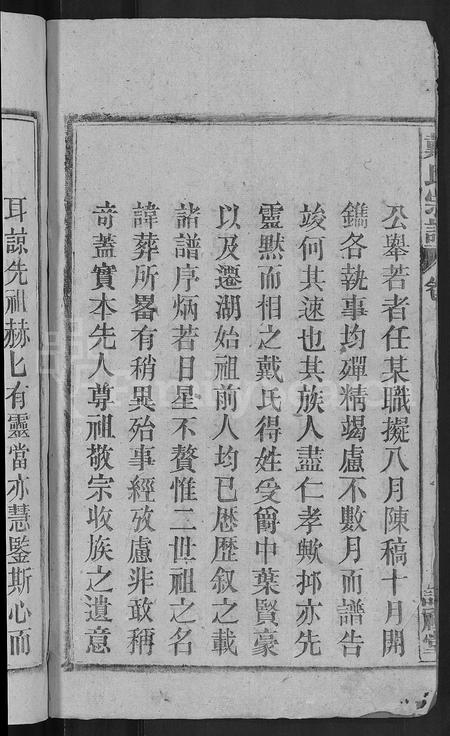 戴氏宗譜
公舉若者任某職擬八月陳稿十月開
鐫各執事均殫精竭慮不數月而譜告
竣何其速也其族人盡仁孝歟抑亦先
靈默而相之戴氏得姓受爵中葉賢豪
以及遷湖始祖前人均已歷歷叙之載
諸譜序炳若日星不贅惟二世祖之名
諱葬所畧有稍異殆事經攷慮非敢稱
奇蓋實本先人尊祖敬宗收族之遺意
耳諒先祖赫匕有靈當亦慧鑒斯心而